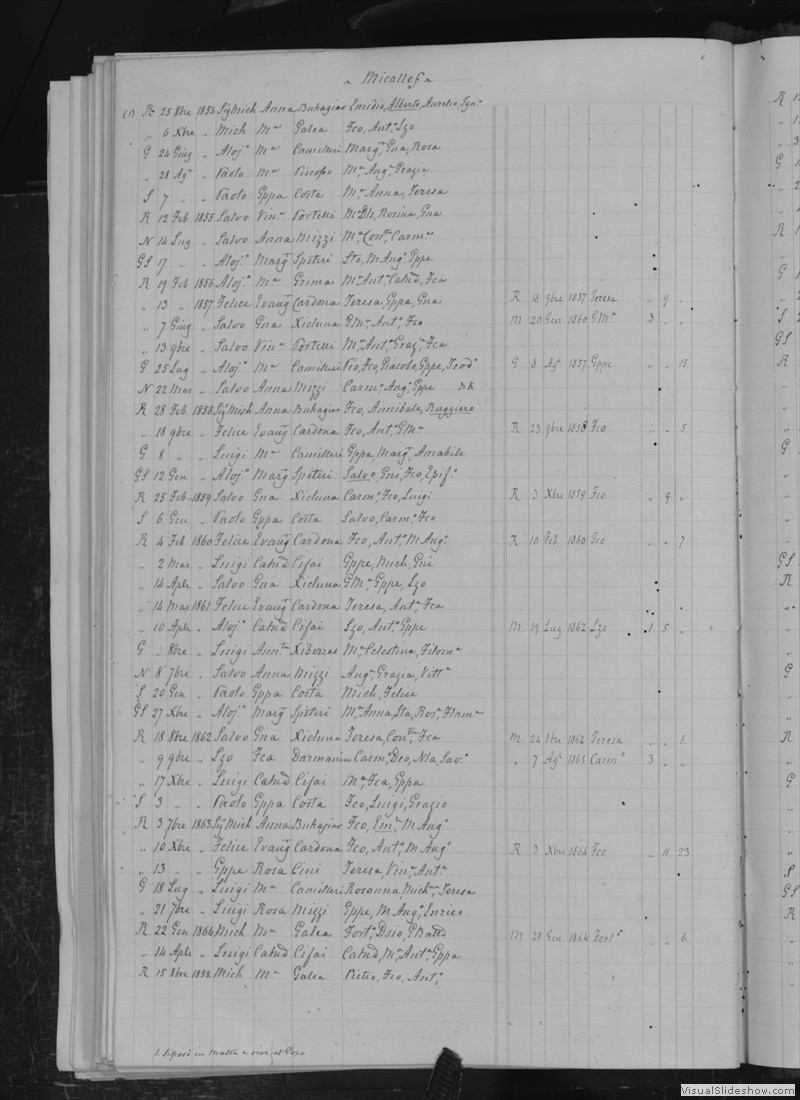 ~ Micallef ~
(1) R 25 8bre 1853 Sig Mich Anna Buhagiar Emidio, Alberto, Aurelio, Ign.o
„ 6 Xbre „ Mich M.a Galea Fco, Ant.o, Lzo
G 24 Giug „ Aloj.o M.a Camilleri Marg.a, Gna, Rosa
„ 28 Ag.o „ Paolo M.a Piscopo M.a Ang.a, Grazia
S 7 „ „ Paolo Gppa Costa M.a Anna, Teresa
R 12 Feb 1855 Salvo Vin.a Portelli M Dls, Rosina, Gna
N 14 Lug „ Salvo Anna Mizzi M.a Con.ta, Carm.a
GS 17 „ „ Aloj.o Marg.a Spiteri Sto, M Ang.o Gppe
R 19 Feb 1856 Aloj.o M.a Grima M.a Ant.a Catnd, Fca
„ 13 „ 1857 Felice Evang.a Cardona Teresa, Gppa, Gna R 18 9bre 1857 Teresa „ 9 „
„ 7 Giug „ Salvo Gna Xicluna G M.a, Ant.o, Fco M 20 Gen 1860 G M.a 3 „ „
„ 13 9bre „ Salvo Vin.a Portelli M.a Ant.a Graz.a, Fca
G 25 Lug „ Aloj.o M.a Camilleri Pio, Fco, Giacobo, Gppe, Teod.o G 8 Ag.o 1857 Gppe „ „ 15
N 22 Mar „ Salvo Anna Mizzi Carm.o Ang.o Gppe
R 28 Feb 1858 Sig Mich Anna Buhagiar Fco, Annibale, Ruggiero
„ 18 9bre „ Felice Evang.a Cardona Fco, Ant.o G M.a R 23 9bre 1858 Fco „ „ 5
G 8 „ „ Luigi M.a Camilleri Gppa, Marg.a, Amabile
GS 12 Gen „ Aloj.o Marg.a Spiteri Salvo, Gni, Fco, Epif.o
R 25 Feb 1859 Salvo Gna Xicluna Carm.o Fco, Luigi R 3 Xbre 1859 Fco „ 9 „
S 6 Gen „ Paolo Gppa Costa Salvo, Carm.o Fco
R 4 Feb 1860 Felice Evang.a Cardona Fco, Ant.o M Ang.o R 10 Feb 1860 Fco „ „ 7
„ 2 Mar „ Luigi Catnd Cifai Gppe, Mich, Gni
„ 14 Aple „ Salvo Gna Xicluna G M.a Gppe, Lzo
„ 14 Mar 1861 Felice Evang.a Cardona Teresa, Ant.a Fca
„ 10 Aple „ Aloj.o Catnd Cifai Lzo, Ant.o Gppe M 19 Lug 1862 Lzo 1 5 „
G „ 8bre „ Luigi Ann.ta Xiberras M.a Celestina, Filom.a
N 8 7bre „ Salvo Anna Mizzi Ang.a Grazia, Vitt.a
S 20 Gen „ Paolo Gppa Costa Mich, Felice
GS 27 Xbre „ Aloj.o Marg.a Spiteri M.a Anna, Sta, Ros.a, Filom.a
R 18 8bre 1862 Salvo Gna Xicluna Teresa, Con.tta, Fca M 24 8bre 1862 Teresa „ „ 8
„ 9 9bre „ Lzo Fca Darmanin Carm.o, Deo, Nla, Sav.o „ 7 Ag.o 1865 Carm.o 3 „ „
„ 17 Xbre „ Luigi Catnd Cifai M.a, Fca, Gppa
S 3 „ „ Paolo Gppa Costa Fco, Luigi, Grazio
R 3 7bre 1863 Sig Mich Anna Buhagiar Fco, Em.o, M Ang.o
„ 10 Xbre „ Felice Evang.a Cardona Fco, Ant.o, M Ang.o R 3 Xbre 1864 Fco „ 11 23
„ 13 „ „ Gppe Rosa Cini Teresa, Vin.a, Ant.a
G 18 Lug „ Luigi M.a Camilleri Rosanna, Mich.a, Teresa
„ 21 7bre „ Luigi Rosa Mizzi Gppe, M Ang.o, Enrico
R 22 Gen 1864 Mich M.a Galea Fort.o, Dsio, G Batta M 29 Gen 1864 Fort.o „ „ 6
„ 14 Aple „ Luigi Catnd Cifai Catnd, M.a Ant.a Gppa
R 15 8bre 1858 Mich M.a Galea Pietro, Fco, Ant.o
1. Sigosò in Malta e vive al Gozo
VisualSlideshow.com